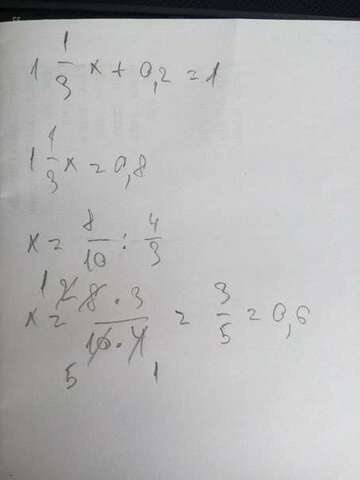 1 1/3 x + 0,2 = 1
1 1/3 x = 0,8
x = 8/10 : 4/3
1 2
x = 8 · 3 / 10 · 4 = 3/5 = 0,6
5 1